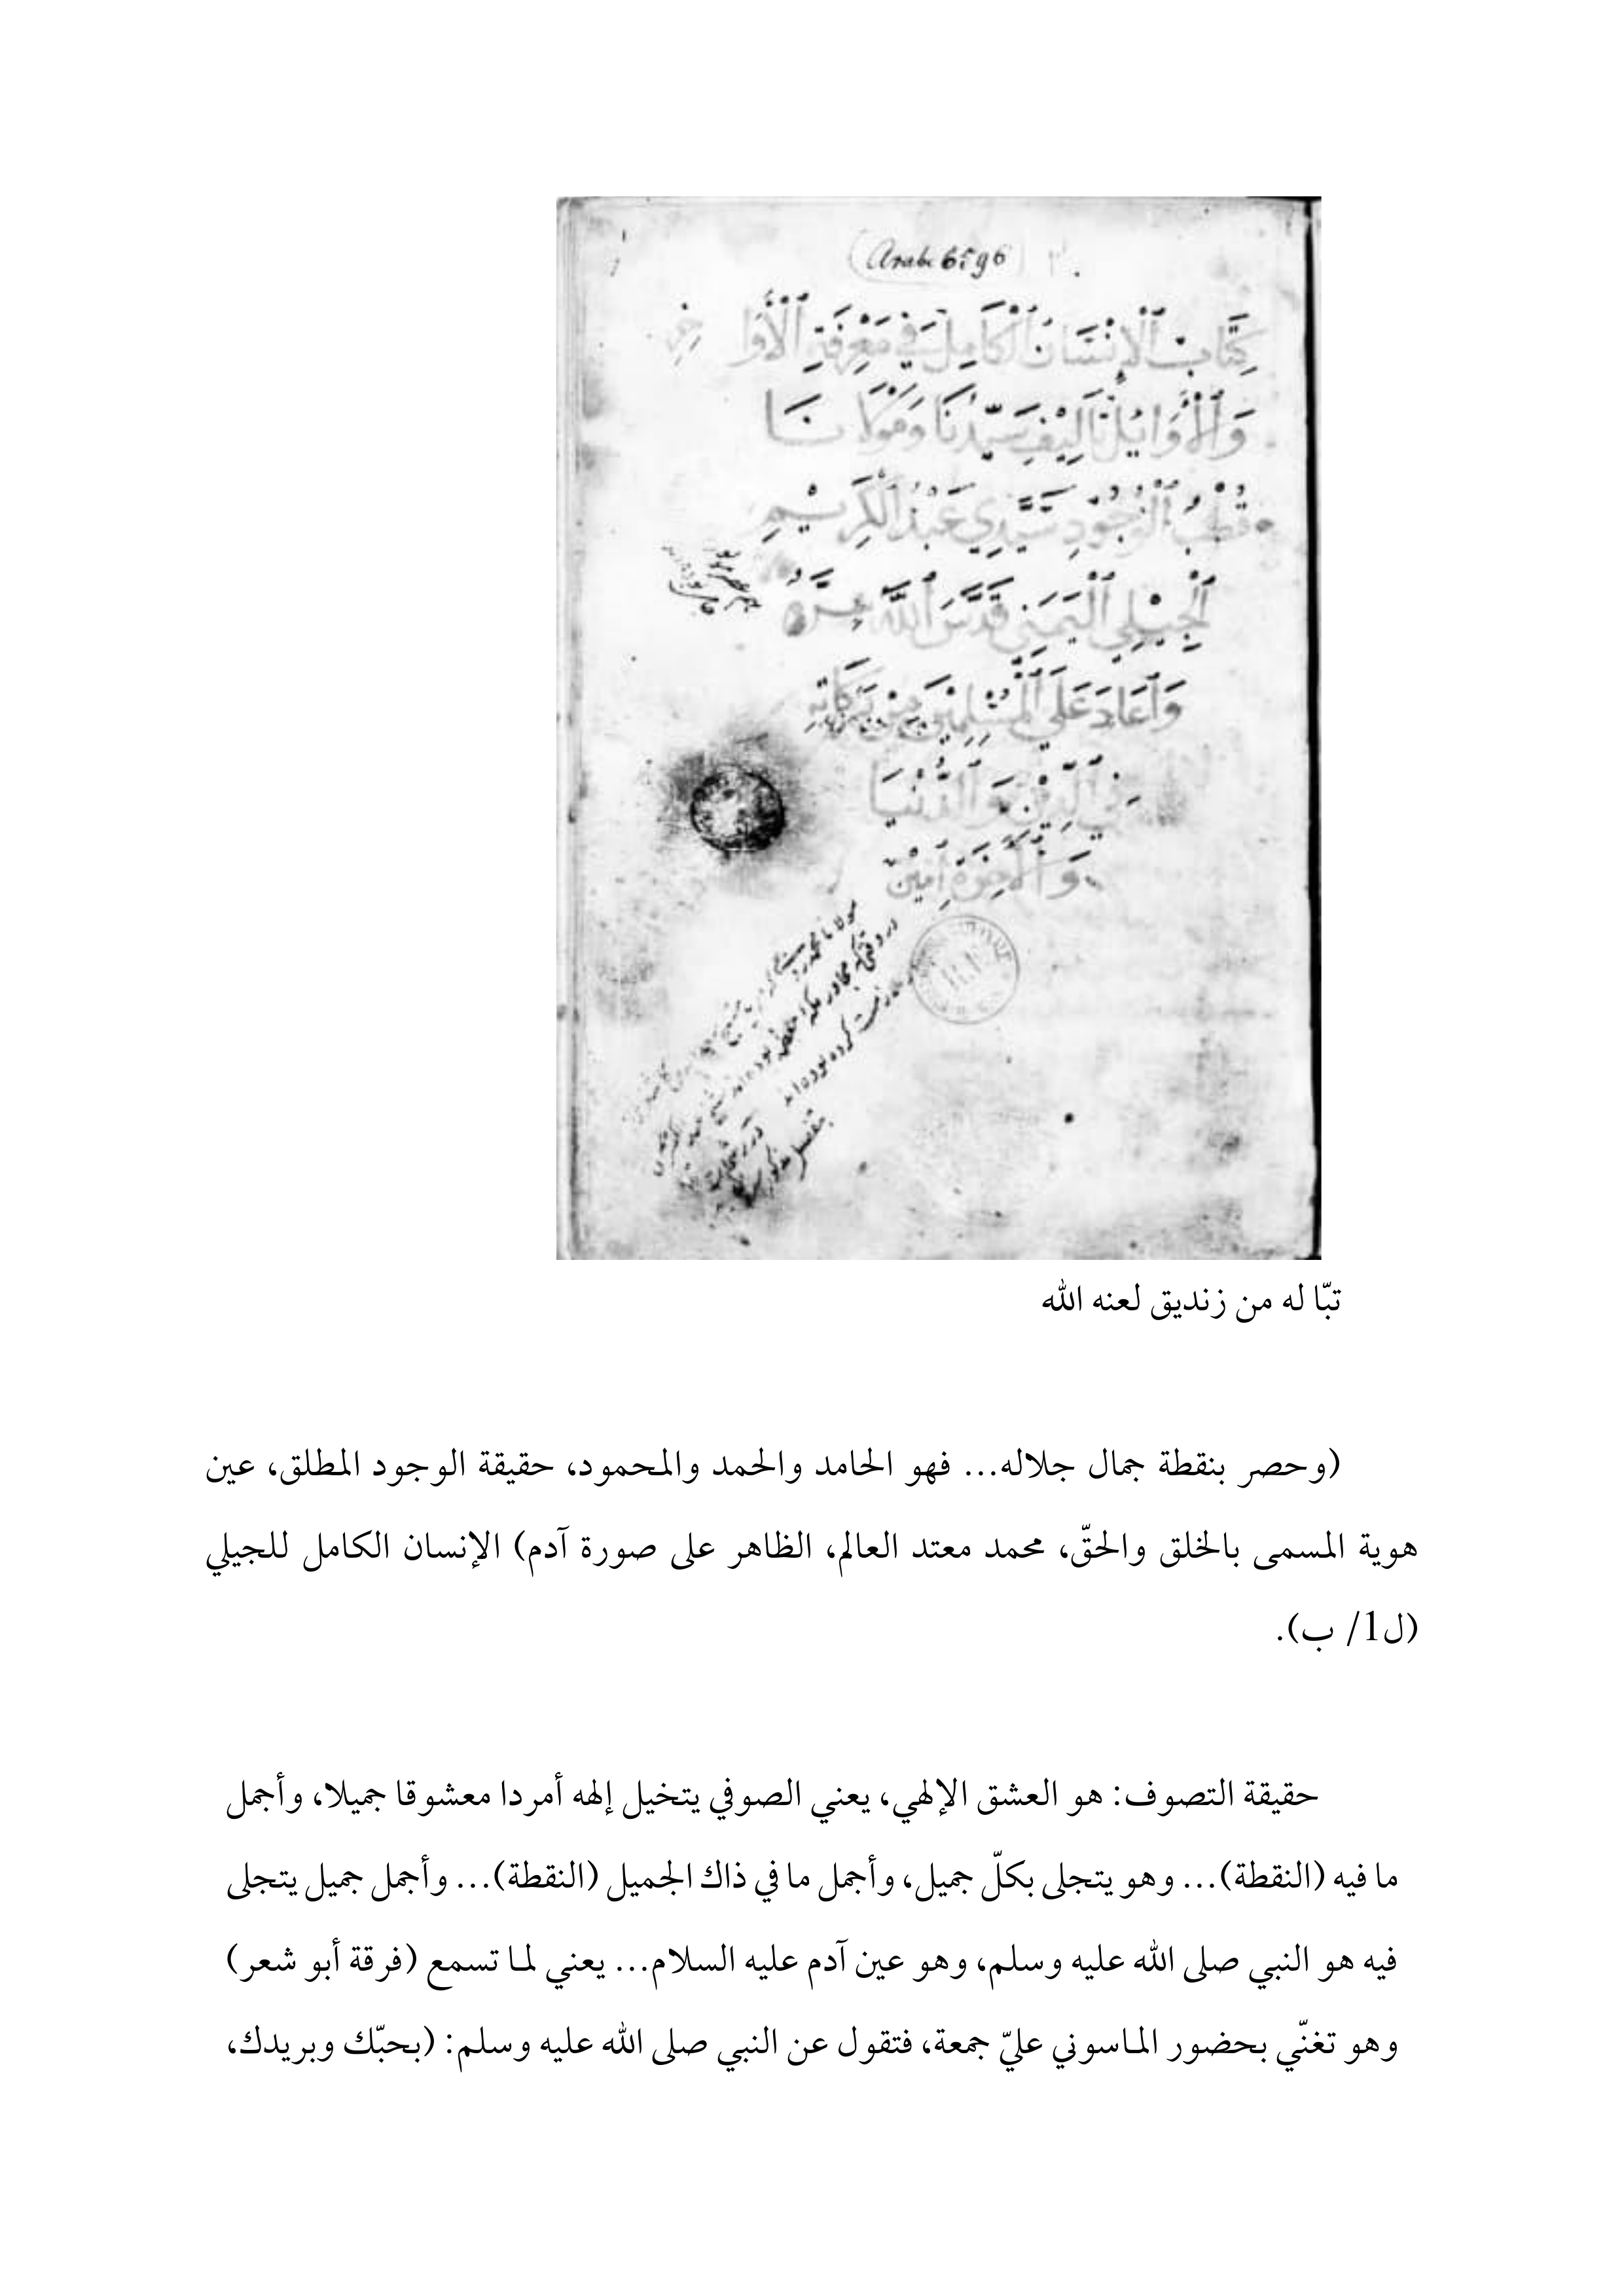 (Arabe 6596)
كِتَابُ ٱلْإِنْسَانُ ٱلْكَامِلُ فِي مَعْرِفَةِ ٱلْأَوَاخِرِ
وَٱلْأَوَائِلْ تَأْلِيْفِ سَيِّدِنَا وَمَوْلَانَا
قُطْبُ ٱلْوُجُوْدِ سَيِّدِي عَبْدُ ٱلْكَرِيْمِ
ٱلْجِيْلِي ٱلْيَمَنِي قَدَّسَ ٱللَّهُ سِرَّهُ
وَأَعَادَ عَلَي ٱلْمُسْلِمِيْنَ مِنْ بَرَكَاتِهِ
فِي ٱلدِّيْنِ وَٱلدُّنْيَا
وَٱلْأَخِرَةِ أَمِيْنَ
تبّا له من زنديق لعنه الله
(وحصر بنقطة جمال جلاله... فهو الحامد والحمد والمحمود، حقيقة الوجود المطلق، عين
هوية المسمى بالخلق والحقّ، محمد معتد العالم، الظاهر على صورة آدم) الإنسان الكامل للجيلي
(ل1/ ب).
حقيقة التصوف: هو العشق الإلهي، يعني الصوفي يتخيل إلهه أمردا معشوقا جميلا، وأجمل
ما فيه (النقطة)... وهو يتجلى بكلّ جميل، وأجمل ما في ذاك الجميل (النقطة)... وأجمل جميل يتجلى
فيه هو النبي صلى الله عليه وسلم، وهو عين آدم عليه السلام... يعني لما تسمع (فرقة أبو شعر)
وهو تغنّي بحضور الماسوني عليّ جمعة، فتقول عن النبي صلى الله عليه وسلم: (بحبّك وبريدك،